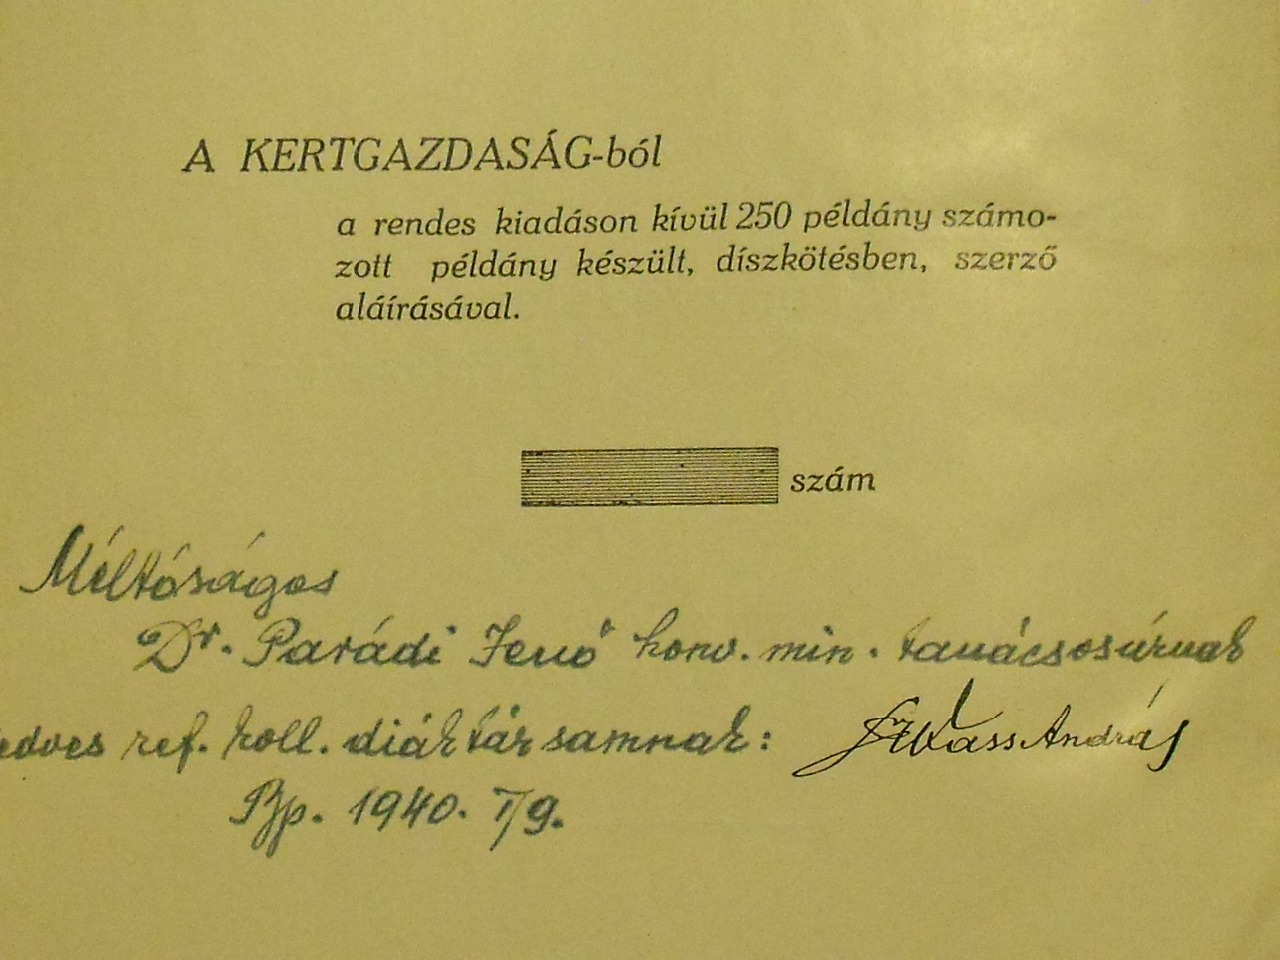 A KERTGAZDASÁG-ból
a rendes kiadáson kívül 250 példány számo-
zott példány készült, díszkötésben, szerző
aláírásával.
szám
Méltóságos
Dr. Parádi Jenő honv. min. tanácsosúrnak
edves ref. koll. diáktársamnak:
András
Bp. 1940. I/9.